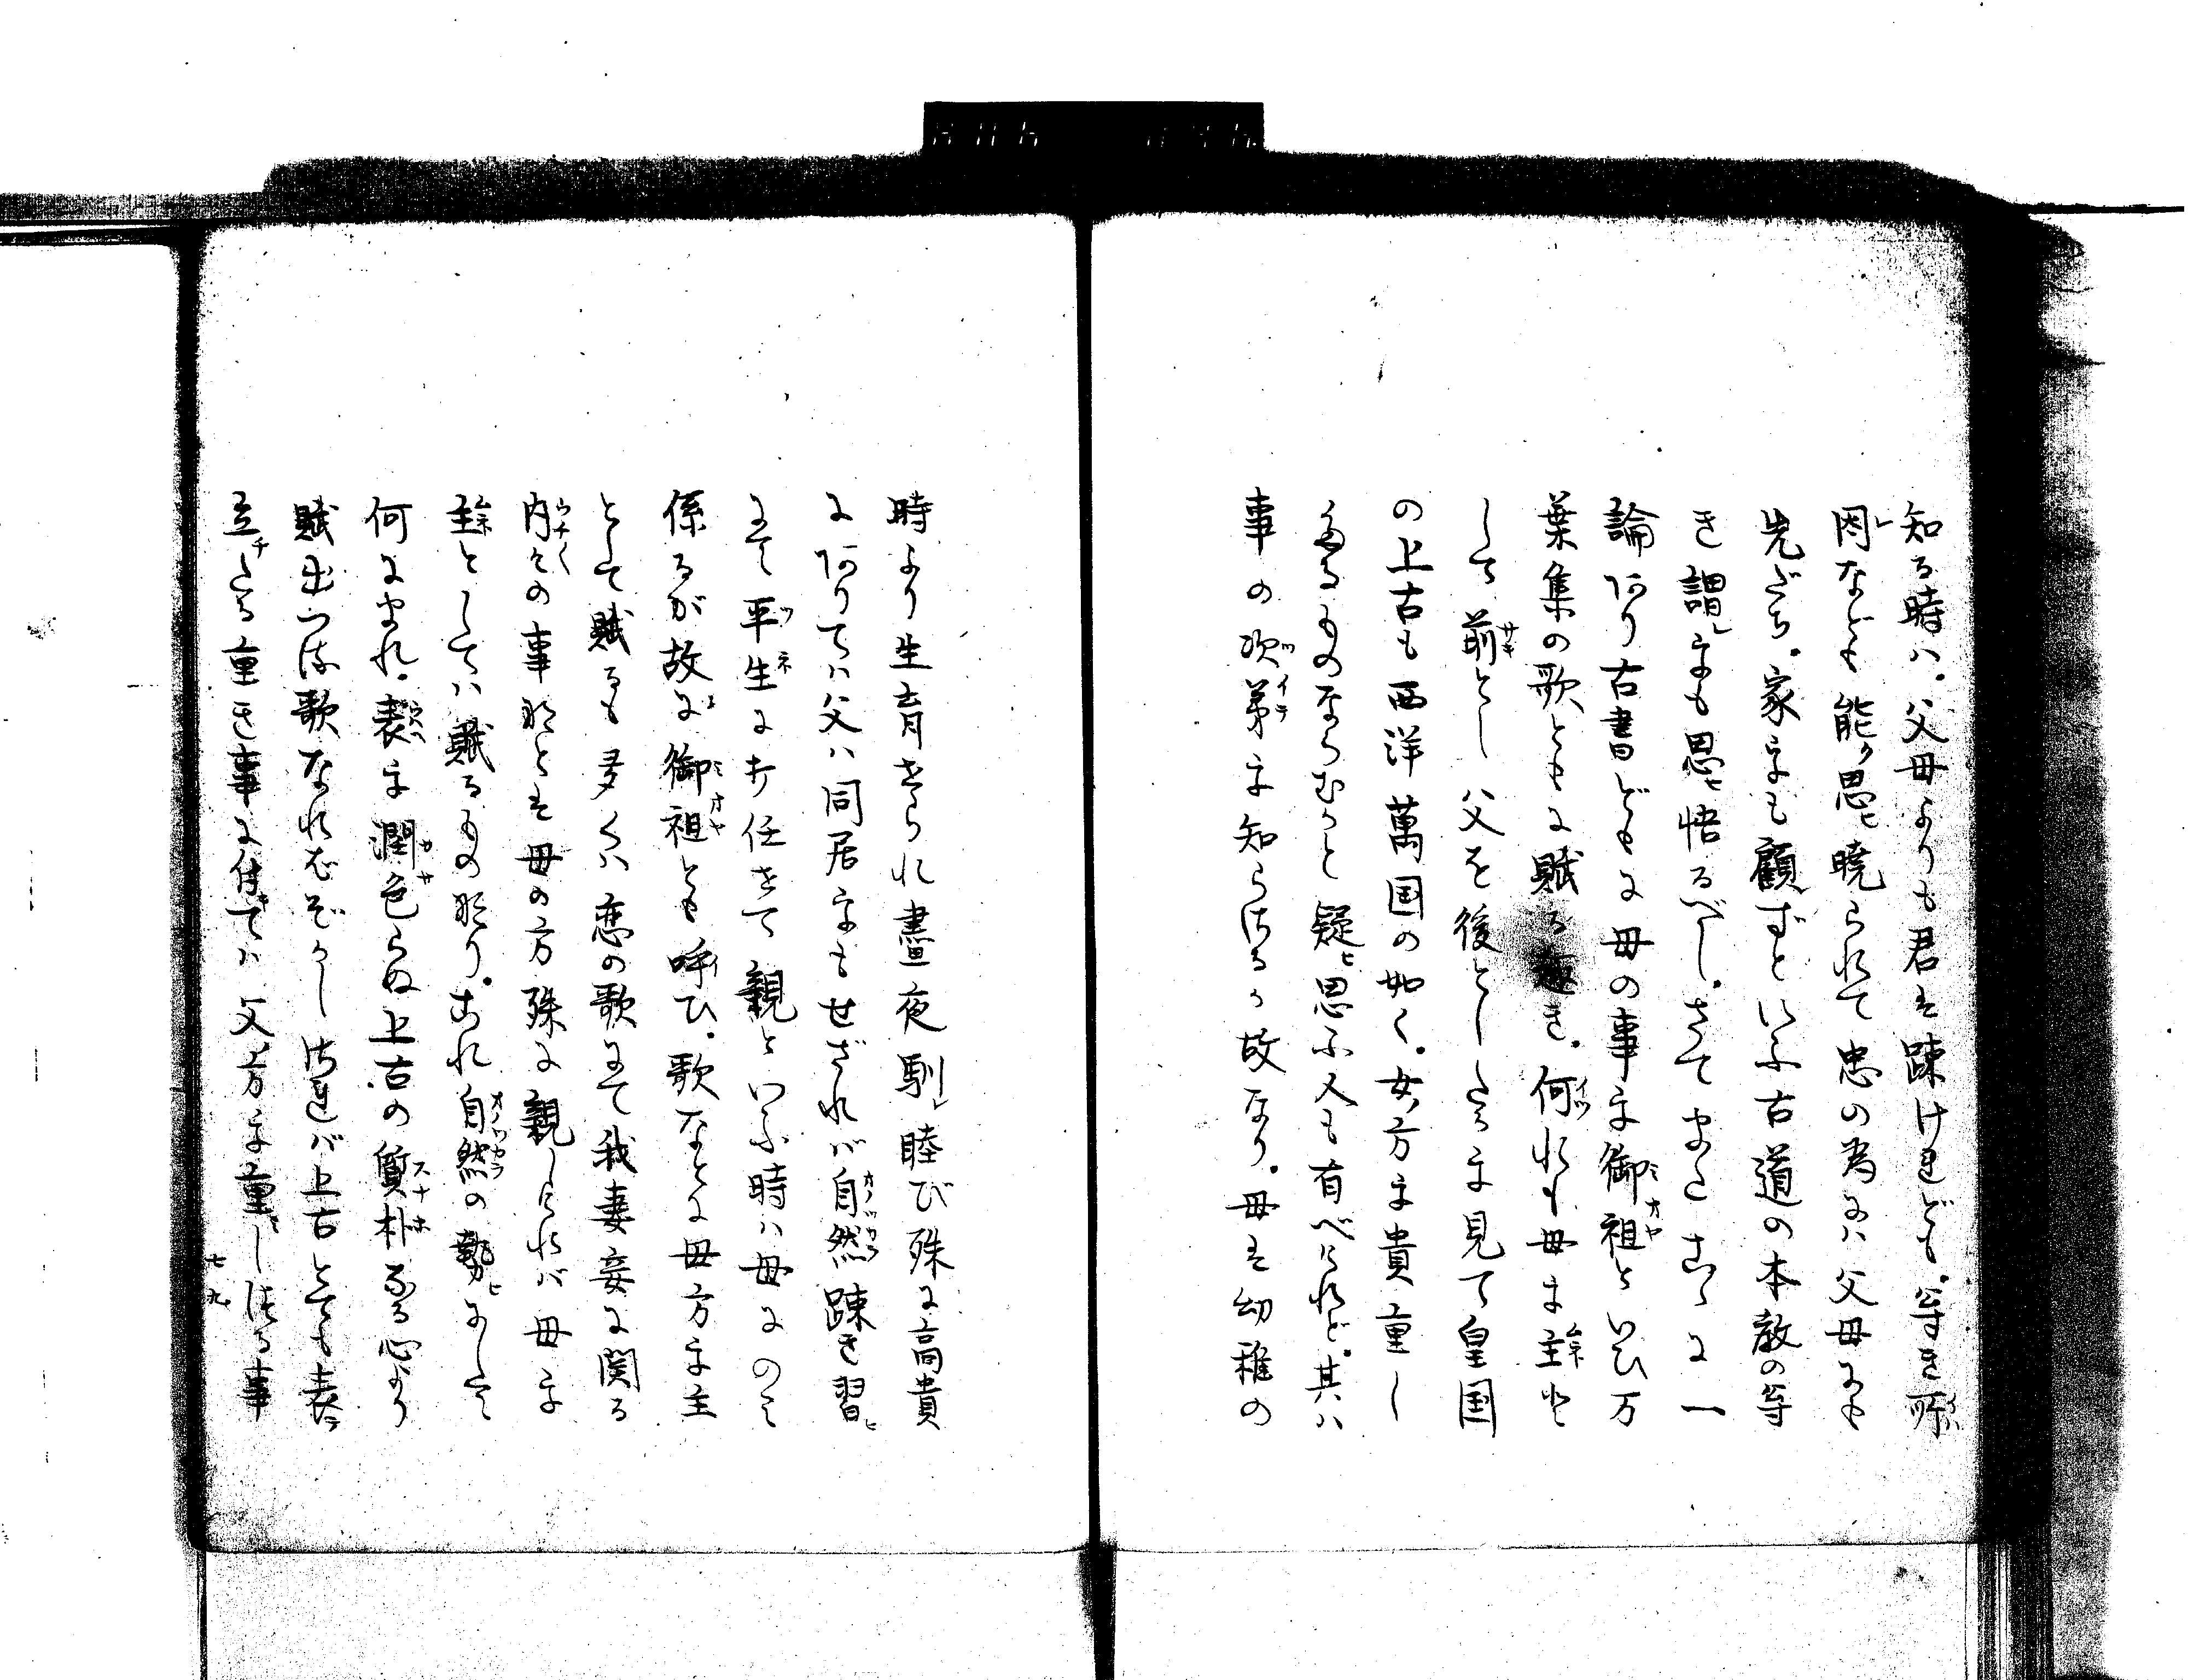 知る時ハ。父母よりも君は疎けれども。等き所
因なども能ク思ヒ暁られて忠の為にハ父母にも
先だち。家をも顧ずといふ古道の本教の等
き謂レをも思ヒ悟るべし。さてまたこゝに一
論あり古書どもに母の事を御祖といひ万
葉集の歌ともに賦る趣き。何れも母を主と
して前とし父を後としたるを見て皇国
の上古も西洋萬国の如く。女方を貴重し
たるものならむかと疑ヒ思ふ人も有べけれど。其ハ
事の次第を知らざるか故なり。母は幼稚の
時より生育せられ晝夜馴レ睦び殊に高貴
にありてハ父ハ同居をもせざれバ自然疎き習ヒ
にて平生に打任せて親といふ時ハ母にのミ
係るが故に御祖とも呼ひ。歌などに母方を主
として賦るも多くハ恋の歌にて我妻妾に関る
内々の事なとは母の方殊に親しけれバ母を
主としてハ賦るもの也。これ自然の勢ヒにして
何にまれ。表を潤色らぬ上古の質朴なる心より
賦出つる歌なれはぞかし されバ上古とても表ラ
立チたる重き事に付てハ父方を重しする事
七九